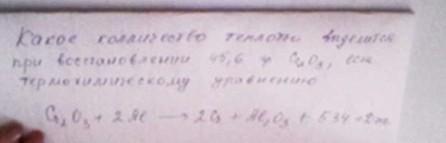 Какое колличество теплоты выделится
при восстановлении 45,6 г Cr₂O₃, если
термохимическому уравнению
Cr₂O₃ + 2Al → 2Cr + Al₂O₃ + 534